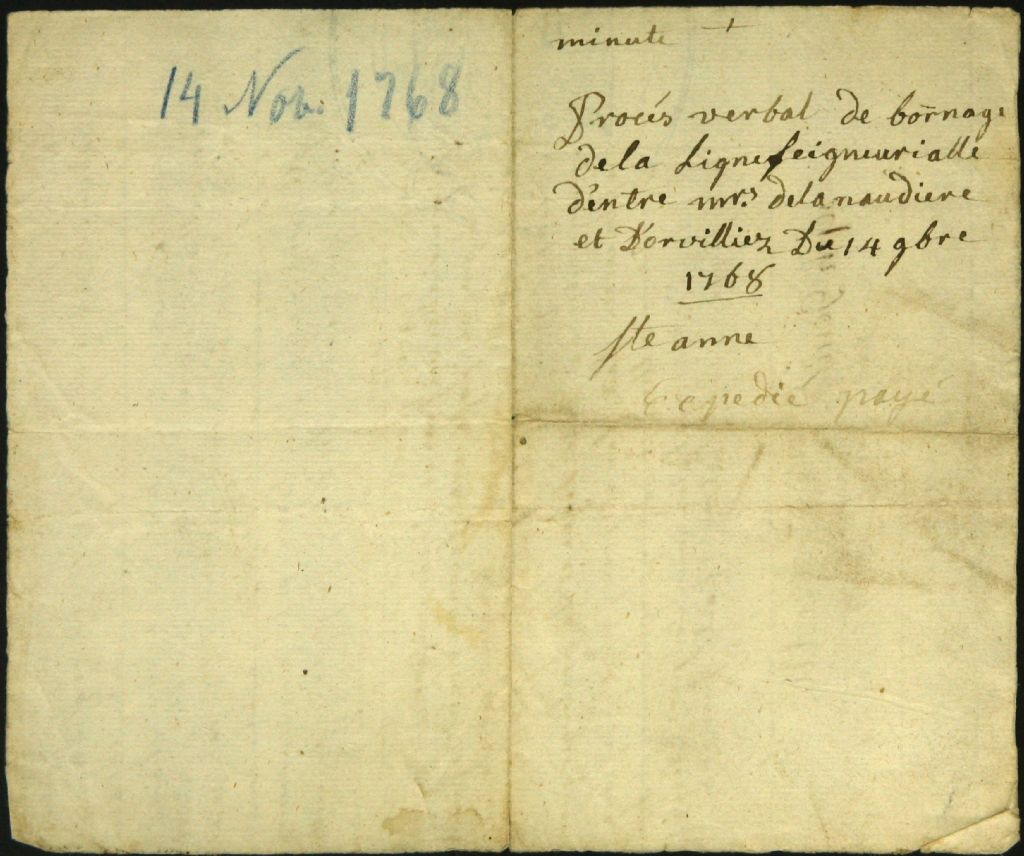 14 Nov. 1768
minute +
Procés verbal de bornage
de la Ligne seigneurialle
d'entre mrs. delanaudiere
et D'orvilliez Du 14 9bre
1768
ste anne
Expedié payé